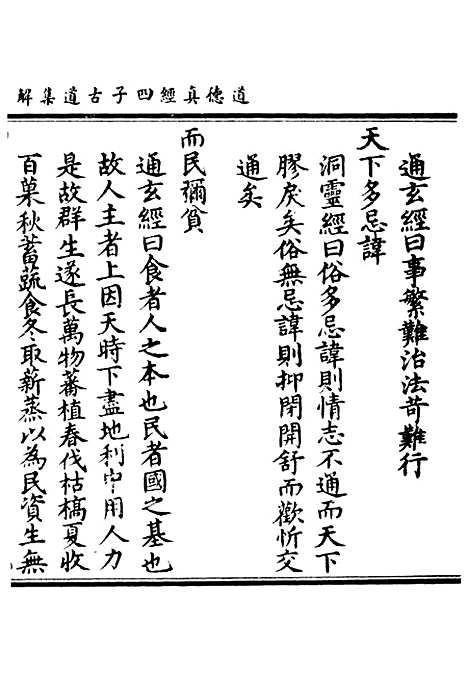 道德真經四子古道集解
通玄經曰事繁難治法苛難行
天下多忌諱
洞靈經曰俗多忌諱則情志不通而天下
膠戾矣俗無忌諱則抑閉開舒而歡忻交
通矣
而民彌貧
通玄經曰食者人之本也民者國之基也
故人主者上因天時下盡地利中用人力
是故群生遂長萬物蕃植春伐枯槁夏收
百菓秋蓄蔬食冬取薪蒸以為民資生無